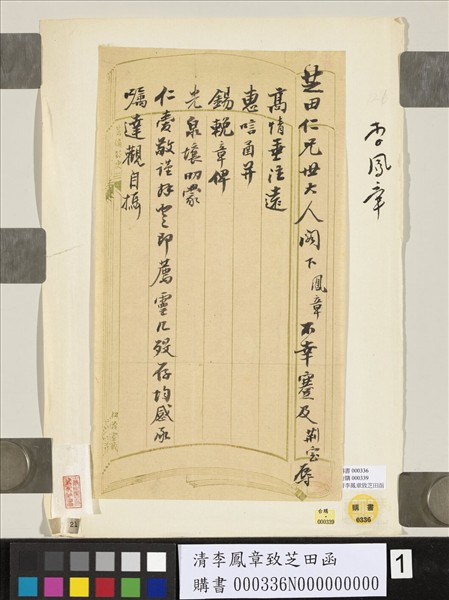 芝田仁兄世大人阁下鳳章不幸蹇及荆室辱
高情垂注遠
惠唁函并
錫輓章俾
光泉壤叨蒙
仁愛敬謹拜登即薦靈几殁存均感承
囑達觀自撝
李鳳章
購書 000336
台購 000339
清李鳳章致芝田函
台購
000339
購書
0336
21
清李鳳章致芝田函
購書 000336N000000000
1